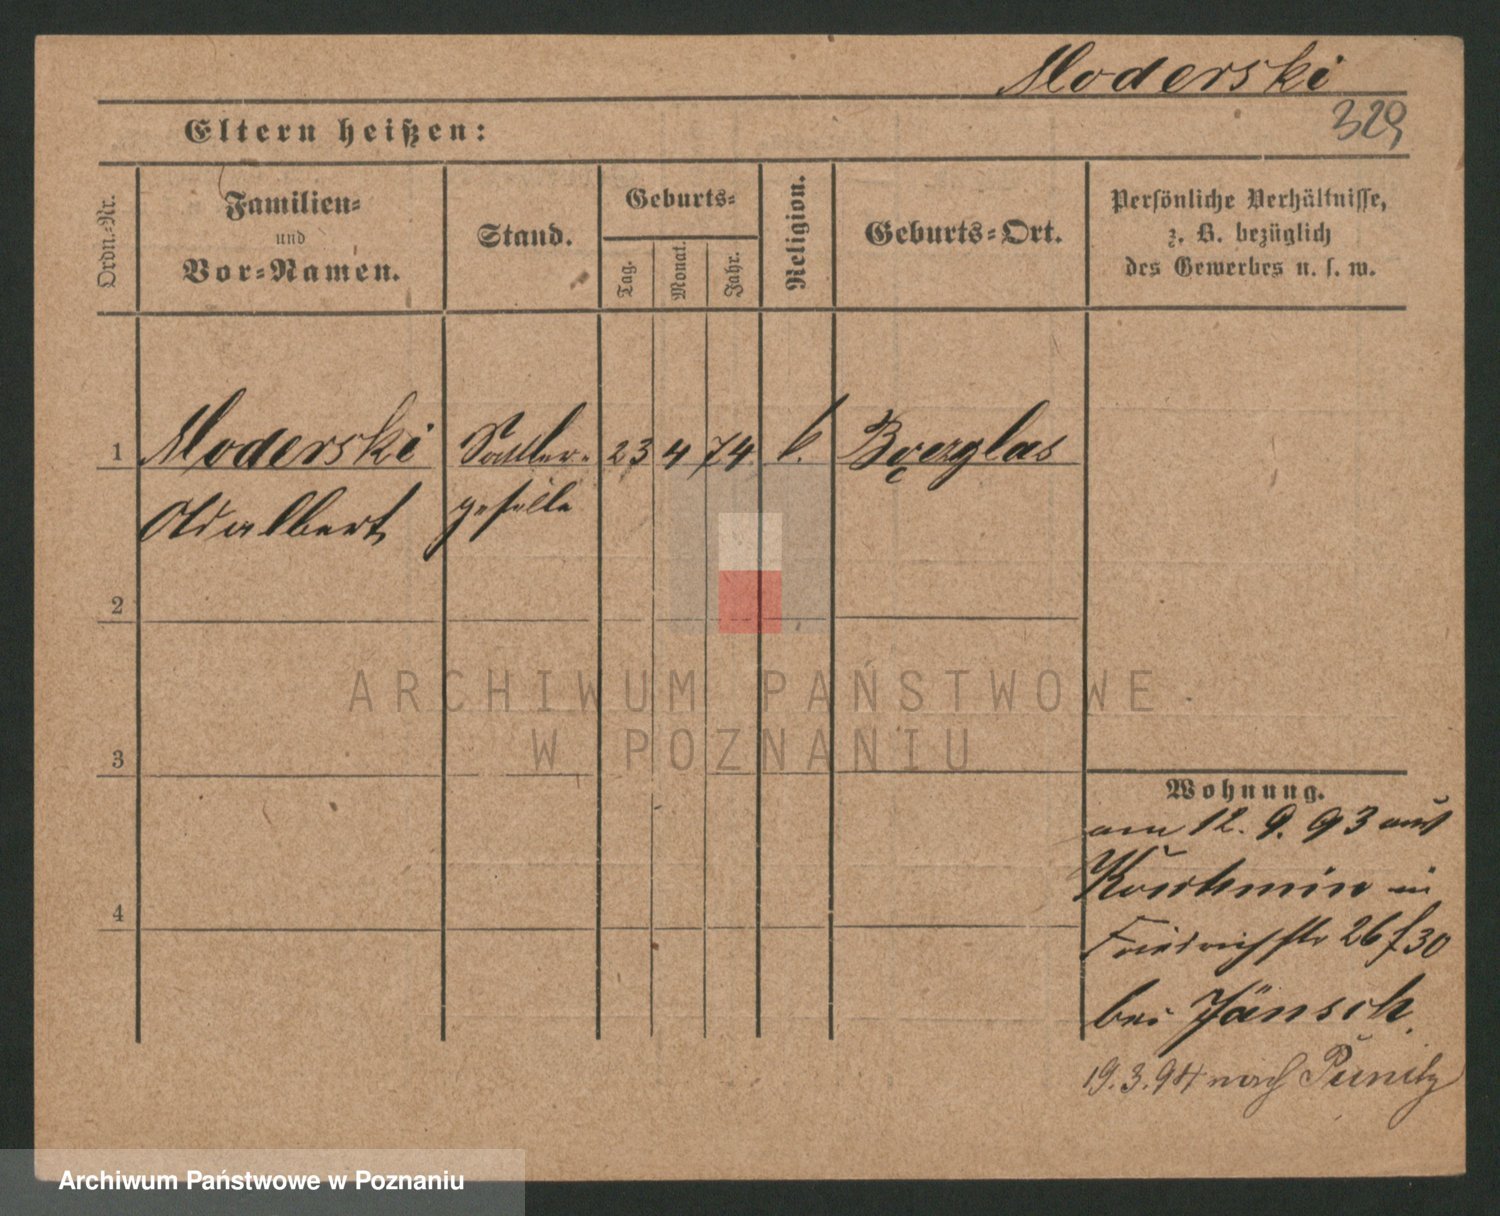 Moderski
329
Eltern heißen:
Ordn.-Nr.
Familien-
und
Vor-Namen.
Stand.
Geburts-
Tag.
Monat.
Jahr.
Religion.
Geburts-Ort.
Persönliche Verhältnisse,
z. B. bezüglich
des Gewerbes u. s. w.
1
Moderski
Sattler-
23
4
74
k.
Adalbert
geselle
2
3
4
Wohnung.
am 12. 9. 93 aus
Koschmin in
Friedrichstr 26/30
bei Jänsch.
19.3.94 nach Punitz
ARCHIWUM PAŃSTWOWE
W POZNANIU
Archiwum Państwowe w Poznaniu